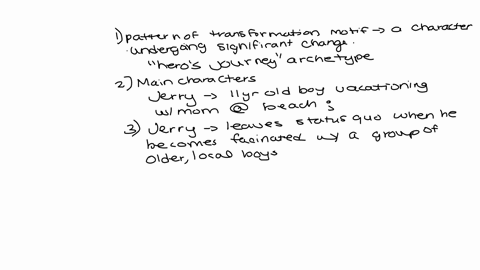 1) pattern of transformation motif → a character
undergoing significant change.
"hero's journey" archetype
2) Main characters
Jerry → 11yr old boy vacationing
w/mom @ beach ;
3) Jerry → leaves status quo when he
becomes facinated w/ a group of
older, local boys